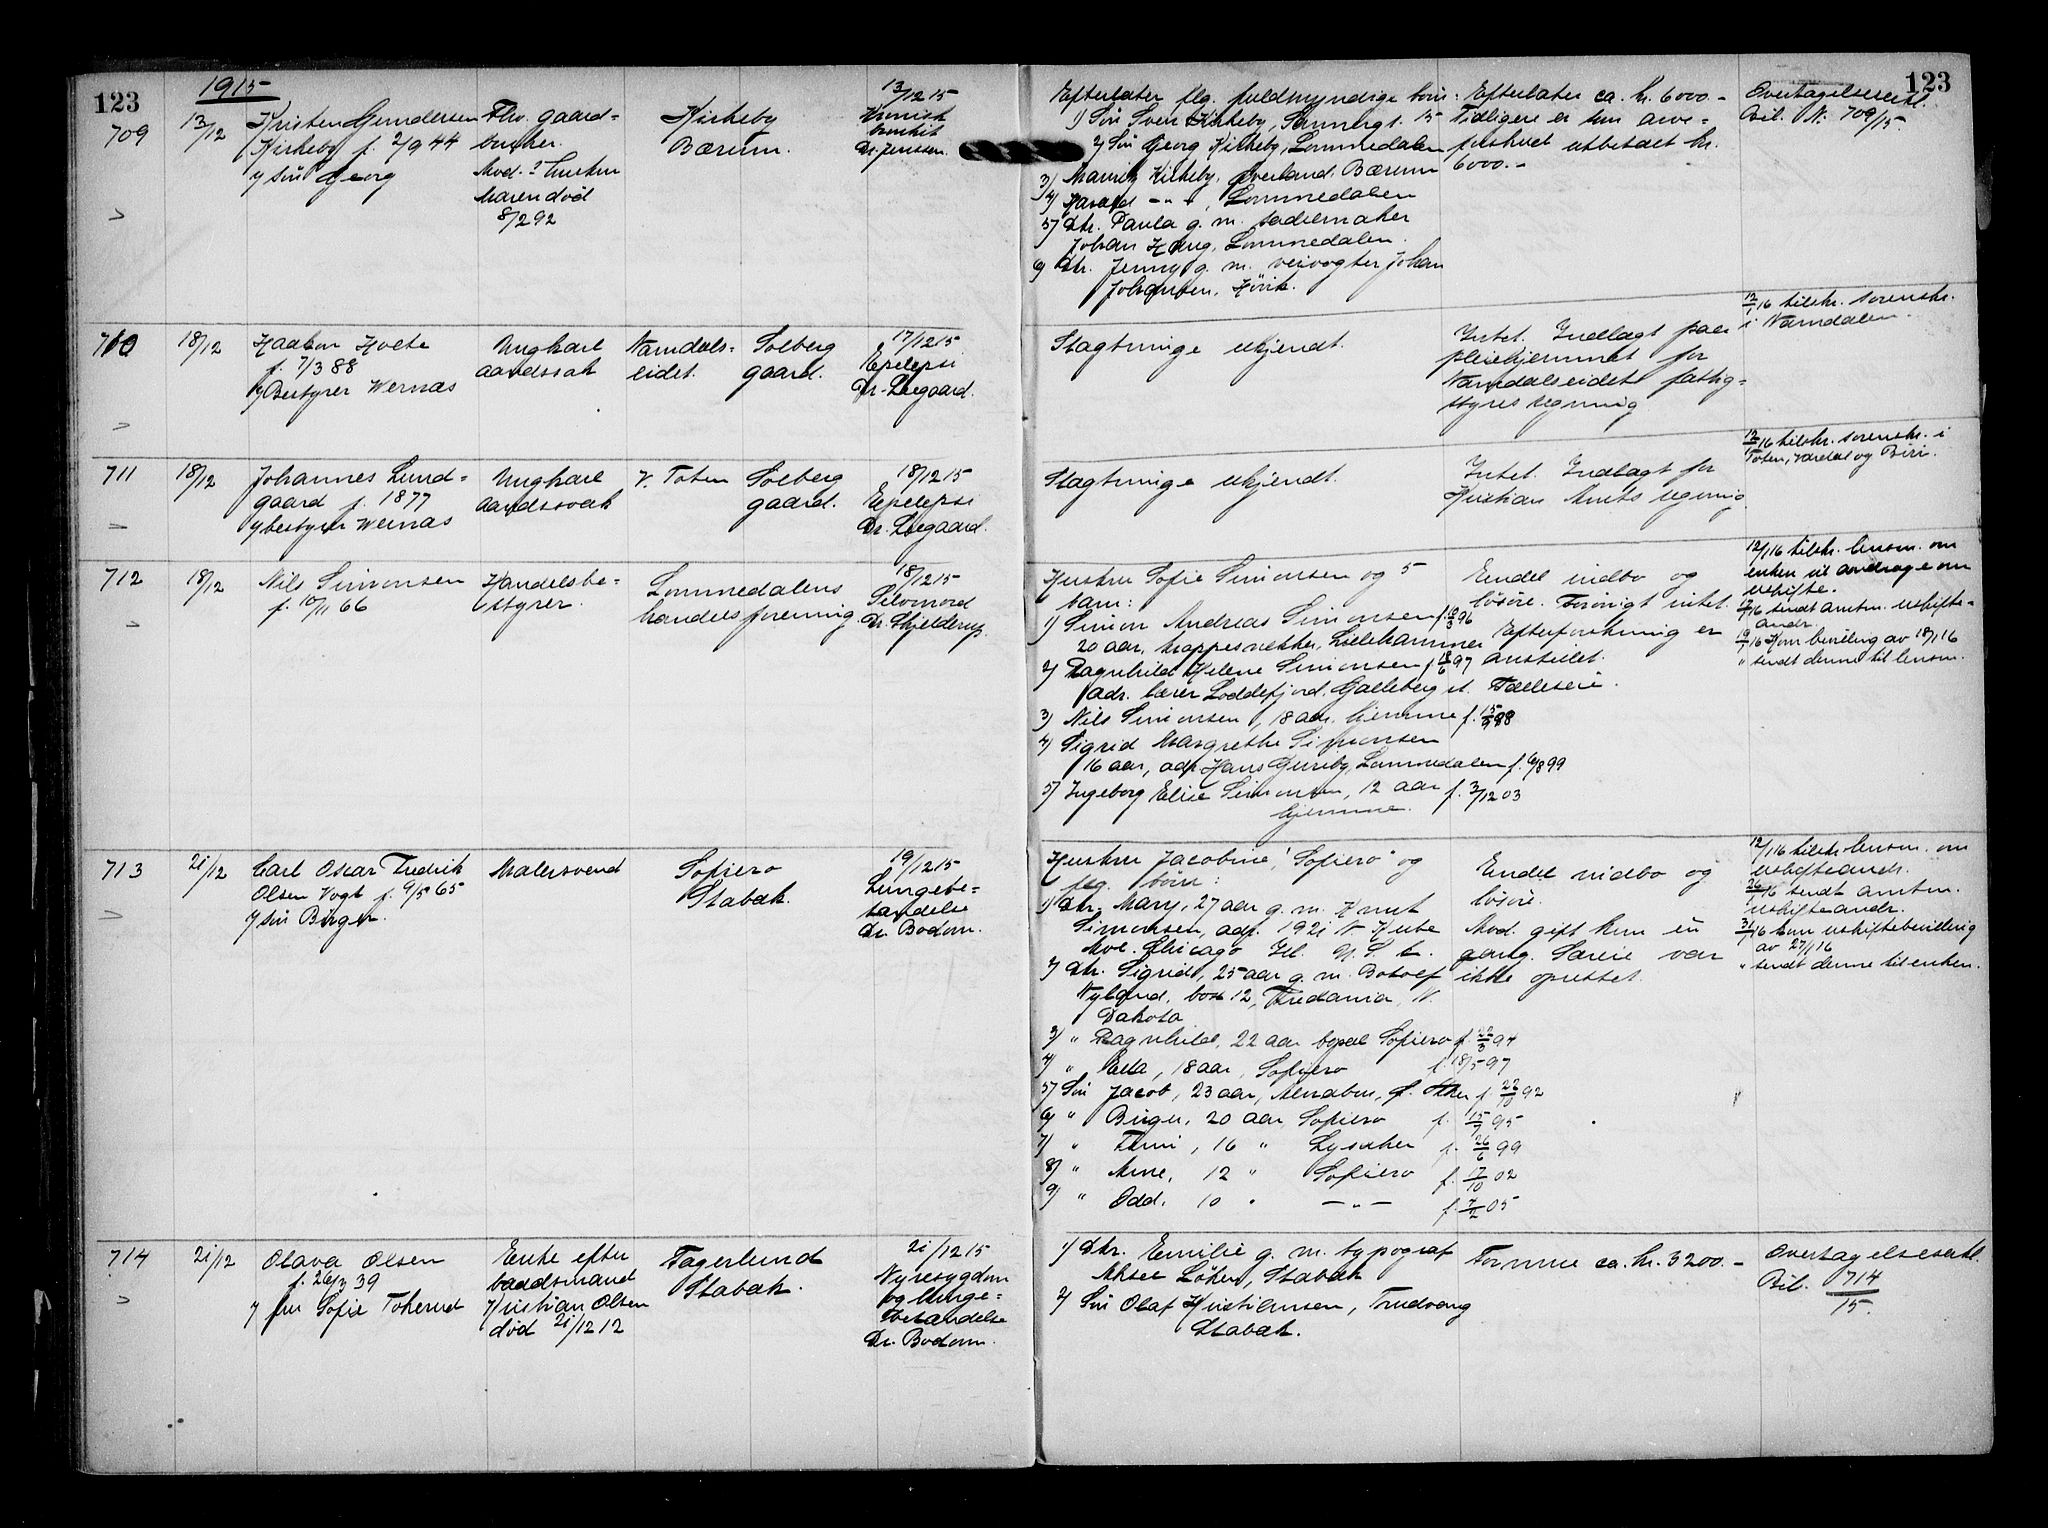 123
1915
709
13/12
Kristen Gundersen
Kirkeby f. 2/9 44
v/ sön Georg
Fhv. gaard-
bruker.
Mod. s hustru
Maren död
8/2 92
Kirkeby
Bærum.
13/12 15
Kronisk
bronkit
Dr. Jenssen.
123
Efterlater flg. fuldmyndige börn:
1) Sön Sven Kirkeby, 15
2) Sön Georg Kirkeby, Lommedalen
3) Mauritz Kirkeby, Överland, Bærum
4) Harald -"-, Lommedalen
5) Dtr. Paula g. m. sadelmaker
Johan Haug, Lommedalen.
6) Dtr. Jenny g. m. veivogter Johan
Johansen, Hövik.
Efterlater ca. kr. 6000.-
Tidligere er hun arve-
forskud utbetalt kr.
6000.-
Overtagelseserkl.
Bil. No 709/15.
710
18/12
Haakon Holte
f. 7/3 88
v/ Bestyrer Wernæs
Ungkarl
aandssvak
Namdals-
eidet.
Solberg
gaard.
17/12 15
Epelepsi
Dr. Leegaard.
Slagtninge ukjendt.
Intet. Indlagt paa
pleiehjemmet for
Namdalseidets fattig-
styres regning
12/1 16 tilskr. sorenskr.
i Namdalen.
711
18/12
Johannes Lund-
gaard f. 1877
v/ bestyrer Wernæs
Ungkarl
aandssvak
V. Toten
Solberg
gaard.
18/12 15
Epelepsi
Dr. Leegaard.
Slagtninge ukjendt.
Intet. Indlagt for
Kristian Amts regning.
12/1 16 tilskr. sorenskr. i
Toten, Vardal og Biri.
712
18/12
Nils Simonsen
f. 10/11 66
Handelsbe-
styrer.
Lommedalens
handelsforening.
18/12 15
Selvmord
Dr. Skjelderup.
Hustru Sofie Simonsen og 5
barn:
1) Simon Andreas Simonsen f. 96
20 aar, Lillehammer
2) Ragnhild Helene Simonsen f. 18/6 97
adr. lærer Loddefjord, Galleberg st.
3) Nils Simonsen, 18 aar, hjemme f. 15/9 88
4) Sigrid Margrethe Simonsen
16 aar, adr. Hans Gureby, Lommedalen f. 6/8 99
5) Ingeborg Elise Simonsen, 12 aar f. 3/12 03
hjemme.
Endel indbo og
lösöre. Forövrigt intet.
Efterforskning er
anstillet.
Fælleseie.
12/1 16 tilskr. lensm. om
enken vil andrage om
uskifte.
17/1 16 sendt amtm. uskifte-
andr.
19/1 16 Kom bevilling av 18/1 16
" sendt denne til lensm.
713
21/12
Carl Oscar Fredrik
Olsen Vogt f. 9/5 65
v/ sön Birger.
Malersvend
Sofiero
Stabæk.
19/12 15
Lungebe-
tændelse
Dr. Bodom.
Hustru Jacobine, "Sofiero" og
flg. börn:
1) Dtr. Mary, 27 aar g. m. Knut
Simonsen, adr. 1921 N
Ave. Chicago Ill. U. S. A.
2) Dtr. Sigrid, 25 aar g. m. Botolf
Nylund, box 12, Fredonia, N.
Dakota
3) " Ragnhild, 22 aar bopæl Sofiero f. 22/3 94
4) " 18 aar, Sofiero f. 18/5 97
5) Sön Jacob, 23 aar, Alnabru, f. 22/10 92
6) " Birger, 20 aar Sofiero f. 15/7 95
7) " 16 " Lysaker f. 26/6 99
8) " Arne, 12 " Sofiero f. 17/10 02
9) " Odd, 10 " -"- f. 7/2 05
Endel indbo og
lösöre.
Mod. gift kun en
gang. Særeie var
ikke oprettet.
12/1 16 tilskr. lensm. om
uskifteandr.
26/1 16 sendt amtm.
uskifteandr.
31/1 16 kom uskiftebevilling
av 27/1 16
" sendt denne til enken.
714
21/12
Olava Olsen
f. 26/3 39
v/ fru Sofie Tokerud
Enke efter
baadsmand
Kristian Olsen
död 21/12 12
Fagerlund
Stabæk.
21/12 15
Nyresygdom
og lunge-
betændelse
Dr. Bodom.
1) Dtr. Emilie g. m. typograf
Aksel Löken, Stabæk
2) Sön Olaf Kristiansen, Trudvang
Stabæk.
Formue ca. kr. 3200.-
Overtagelseserkl.
Bil. 714/15.